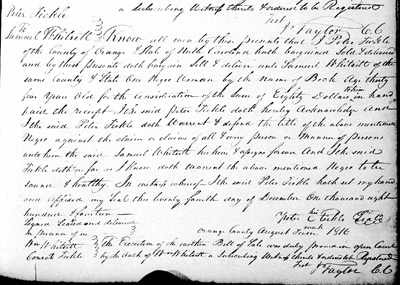 Peter Fickle a Subscribing Witness thereto & ordered to be Registered
To Test J Taylor C C
Samuel Whitsitt Know all men by these presents that I Peter Fickle
of the County of Orange & State of North Carolina hath bargained Sold & delivered
and by these presents doth bargain Sell & deliver unto Samuel Whitsitt of the
same County & State One Negro Woman by the name of Beck Age thirty
five Years Old for the consideration of the Sum of Eighty Dollars in hand
paid the receipt I the said Peter Fickle doth hereby Acknowledg And
I the said Peter Fickle doth Warrent & defend the title of the above mentioned
Negro against the claim or claims of all & every person or Manner of Persons
unto him the said Samuel Whitsitt his heirs & assigns forever And I the said
Fickle doth as far as I Know doth warrent the above mentioned Negro to be
sound & healthy. In witness whereof I the said Peter Fickle hath set my hand
and affixed my Seal this twenty fourth day of December One thousand eight
hundred & fourteen
Signed Sealed and delivered Peter his Fickle Seal
in presence of us mark
Orange County August Term 1816
Wm Whitsitt The Execution of the within Bill of Sale was duly proven in open Court
Fickle by the oath of Wm Whitsitt a Subscribing Witness thereto & ordered to be Registered
Test J Taylor C C